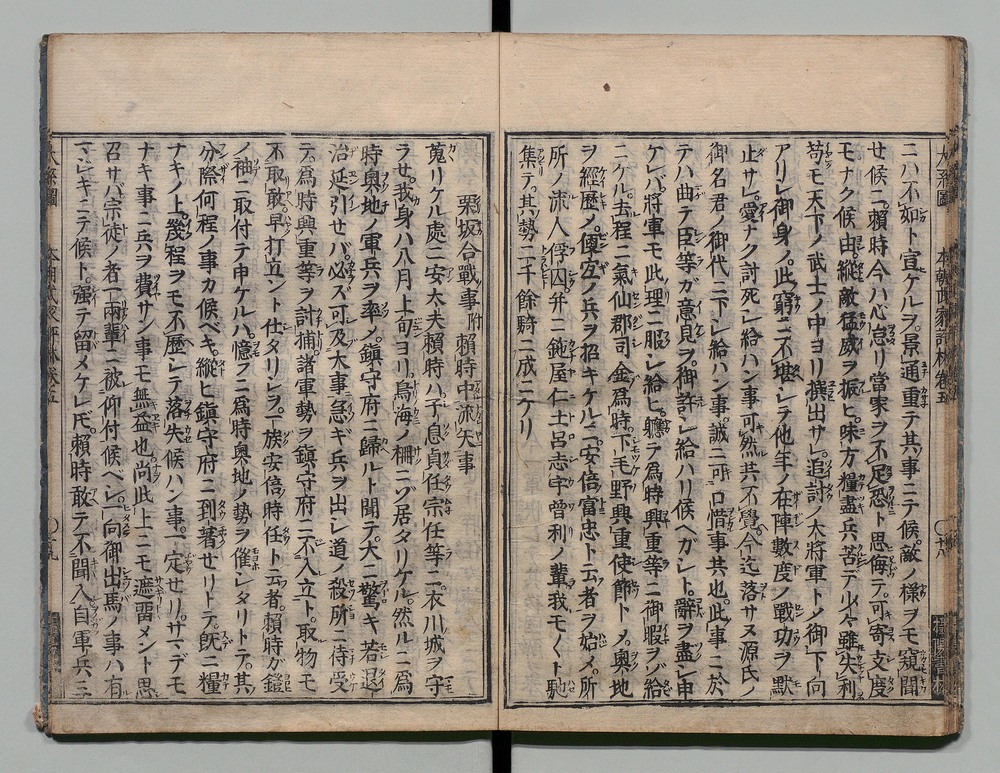 ニハ不如ト宣ケルヲ。景通重テ其事ニテ候。敵ノ様ヲモ窺聞
せ候ニ。頼時今ハ心怠リ當家ヲ不足恐ト思侮テ。可寄支度
モナク候由。縦敵猛威ヲ振ヒ。味方糧盡兵苦テ少々雖失利
苟モ天下ノ武士ノ中ヨリ撰出サレ。追討ノ大將軍トノ御下向
アリレ御身ノ。此窮ニ不堪レテ他年ノ在陣數度ノ戰功ヲ黙
止サレ。愛ナク討死レ給ハン事可然共不覺。今迄落サヌ源氏ノ
御名君ノ御代ニ下レ給ハン事。誠ニ可口惜事共也。此事ニ於
テハ曲テ臣等ガ意見ヲ御許レ給ハリ候ヘガレト。辭ヲ盡レ申
ケレバ。將軍モ此理ニ服レ給ヒ。軈テ為時興重等ニ御暇ヲゾ給
ニケル。去程ニ氣仙郡司金為時。下毛野興重使節トメ。奥地
ヲ經歴ノ。便宜ノ兵ヲ招キケルニ。安倍富忠ト云者ヲ始メ。所
所ノ浪人俘囚弁ニ鉇屋仁土呂志宇曽利ノ輩我モくト馳
集テ。其勢二千餘騎ニ成ニケリ
粟坂合戰事附賴時中流矢事
蒐リケル處ニ安大夫頼時ハ。子息貞任宗任等ニ。衣川城ヲ守
ラせ。我身ハ八月上旬ヨリ。鳥海ノ柵ニゾ居タリケル。然ルニ為
時奥地ノ軍兵ヲ率ノ。鎮守府ニ歸ルト聞テ。大ニ驚キ若退
治延引せバ。必ズ可及大事急ギ兵ヲ出レ道ノ殺所ニ待受
テ。為時興重等ヲ討捕諸軍勢ヲ鎮守府ニ不入立ト。取物モ
不取敢早打立ント仕タリレヲ。一族安倍時任ト云者。賴時ガ鎧
ノ袖ニ取付テ申ケルハ憶フニ為時奥地ノ勢ヲ催レタリトテ。其
分際何程ノ事カ候ベキ。縦ヒ鎮守府ニ到著せリトテ。既ニ糧
ナキノ上。幾程ヲモ不歴レテ落失候ハン事。一定せリ。サマデモ
ナキ事ニ兵ヲ費サン事モ無益也尚此上ニモ遮留メント思
召サバ宗徒ノ者一兩輩ニ被仰付候ベレ。一向御出馬ノ事ハ有
キニテ候ト。强テ留メケレ𪜈。賴時敢テ不聞入自軍兵三